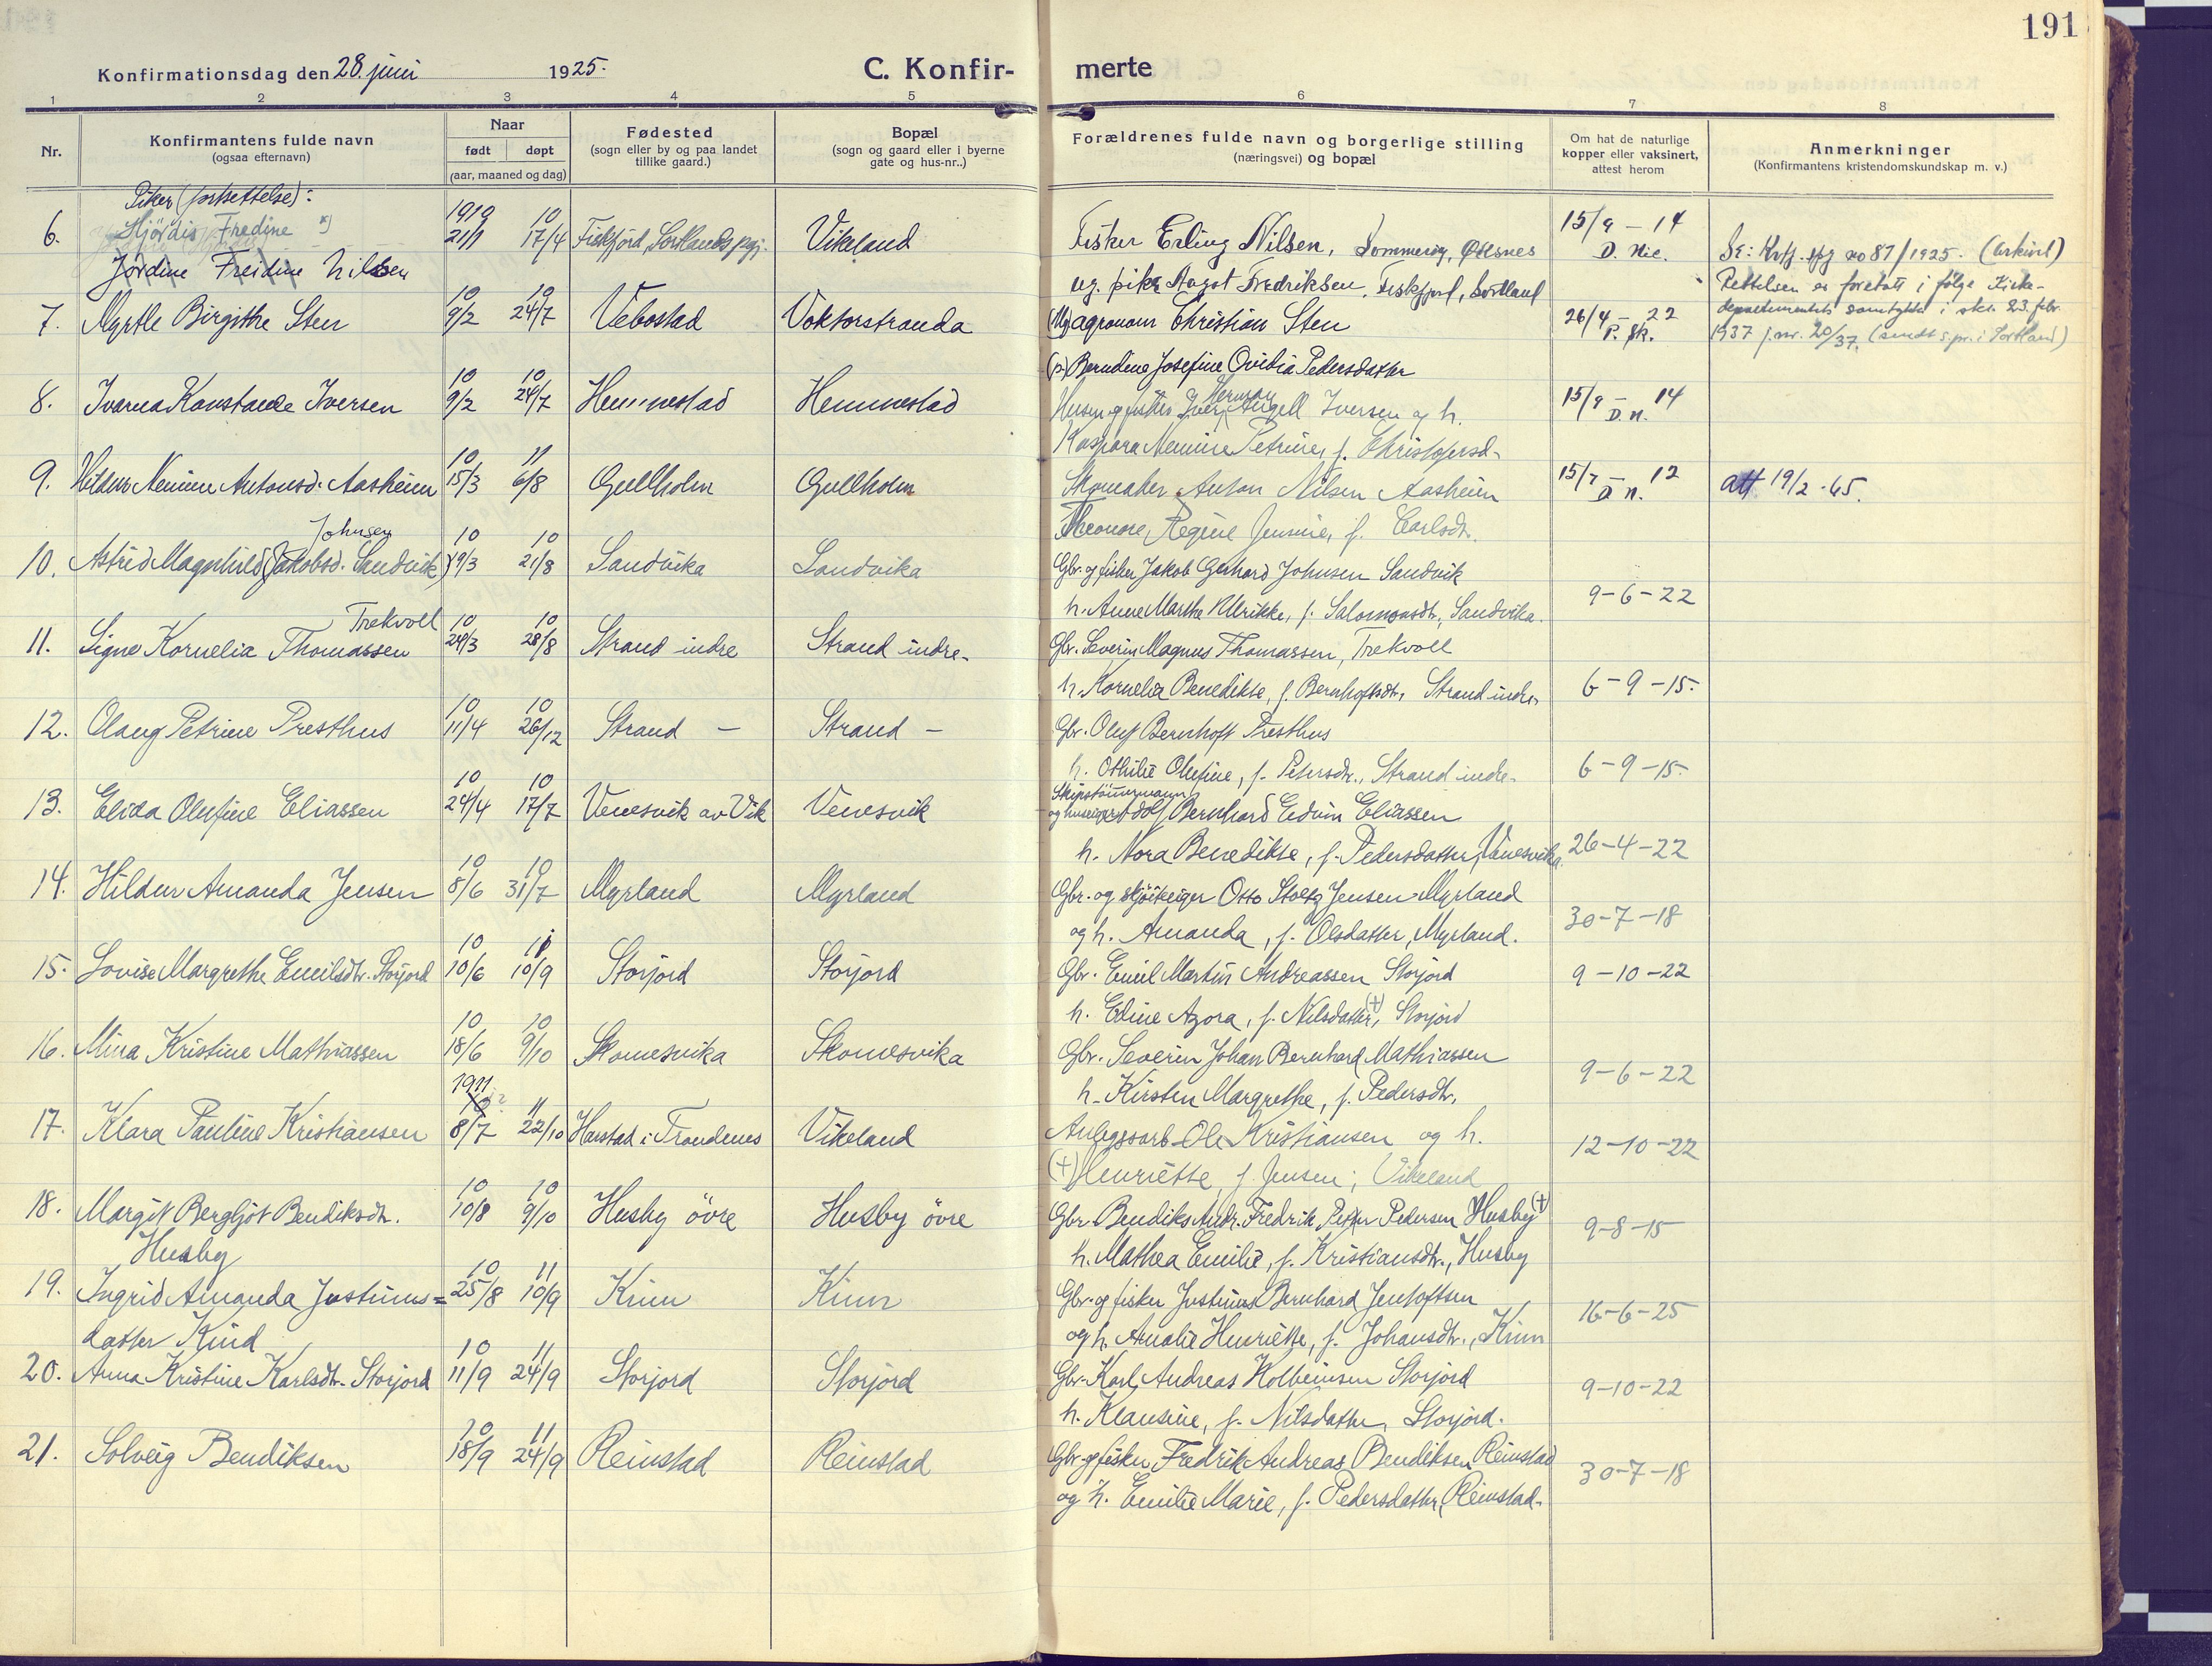 191
Konfirmationsdag den 28. juni 1925.
C. Konfir-merte
1 2 3 4 5 6 7 8
Nr.
Konfirmantens fulde navn
(ogsaa efternavn)
Naar
født døpt
(aar, maaned og dag)
Fødested
(sogn eller by og paa landet
tillike gaard.)
Bopæl
(sogn og gaard eller i byerne
gate og hus-nr..)
Forældrenes fulde navn og borgerlige stilling
(næringsvei) og bopæl
Om hat de naturlige
kopper eller vaksinert,
attest herom
Anmerkninger
(Konfirmantens kristendomskundskap m. v.)
Piker (fortsettelse):
6. Hjördis Fredine 1910 21/1 10 17/4 Fiskfjord, Sortlands pgj. Vikeland Fisker Erling Nilsen, Sommeröy, Öksnes 15/9 - 14 D. Nic.
Jördine Freidine Nilssen ug. pike Aagot Fredriksen, Fiskfjord, Sortland
no 87/1925. (arkivet)
Rettelsen er foretatt i følge Kirke-
departementets samtykke i skr. 23. febr.
1937 j.nr. 20/37. (sendt s.pr. i Sortland)
7. Myrtle Birgithe Sten 10 9/2 10 24/7 Vebostad Voktorstranda agronom Christian Sten 26/4 - 22 P. Sk.
Berndine Josefine Ovidia Pedersdatter
8. Ivarna Konstanse Iversen 10 9/2 10 24/7 Hemmestad Hemmestad Husm. og fisker Iver Herman Angell Iversen og h. 15/9 - 14 D. N.
Kaspara Nemine Petrine, f. Christofersd.
9. Hildur Nemine Antonsd. Aasheim 10 15/3 11 6/8 Gullholm Gullholm Skomaker Anton Nilsen Aasheim 15/7 - 12 D. N. att 19/2-45.
Theonore Regine Jensine, f. Carlsdt.
10. Astrid Magnhild (Jakobsd. Sandvik) Johnsen 10 19/3 10 21/8 Sandvika Sandvika Gbr. og fisker Jakob Gerhard Johnsen Sandvik
h. Anne Marthe Ulrikke, f. Salomonsdt., Sandvika. 9-6-22
11. Signe Kornelia Thomassen Trekvoll 10 24/3 10 28/8 Strand indre Strand indre Gbr. Severin Magnus Thomassen, Trekvoll
h. Kornelia Benedikte, f. Bernhoftsdt., Strand indre 6-9-15.
12. Olaug Petrine Presthus 10 11/4 10 26/12 Strand - Strand - Gbr. Oluf Bernhoft Presthus
h. Othilie Olufine, f. Petersdt., Strand indre 6-9-15.
13. Elida Olufine Eliassen 10 24/4 10 17/7 Venesvik av Vik Venesvik Skipstömmermann og huseier Adolf Bernhard Edvin Eliassen
h. Nora Benedikte, f. Pedersdatter, Vänesvika. 26-4-22
14. Hildur Amanda Jensen 10 8/6 10 31/7 Myrland Myrland Gbr. og sköiteeiger Otto Stoltz Jensen Myrland
og h. Amanda, f. Olsdatter, Myrland. 30-7-18
15. Lovise Margrethe Emilsdtr. Storjord 10 10/6 11 10/9 Storjord Storjord Gbr. Emil Martin Andreassen Storjord 9-10-22
h. Edine Azora, f. Nilsdatter, (+) Storjord
16. Mina Kristine Mathiassen 10 18/6 10 9/10 Skomesvika Skomesvika Gbr. Severin Johan Bernhard Mathiassen
h. Kirsten Margrethe, f. Pedersdtr. 9-6-22
17. Klara Pauline Kristiansen 1911 8/7 11 22/10 Harstad i Trondenes Vikeland Anlegsarb. Ole Kristiansen og h. 12-10-22
(+) Henriette, f. Jensen; Vikeland
18. Margit Bergljot Bendiksdtr. 10 10/8 10 9/10 Husby övre Husby övre Gbr. Bendiks Andr. Fredrik Petter Pedersen Husby (+) 9-8-15
Husby h. Mathea Emilie, f. Kristiansdtr., Husby
19. Ingrid Amanda Justinus= 10 25/8 11 10/9 Kinn Kinn Gbr. og fisker Justinus Bernhard Jentoftsen 16-6-25
datter Kind og h. Amalie Henriette, f. Johansdtr., Kinn
20. Anna Kristine Karlsdtr. Storjord 10 11/9 11 24/9 Storjord Storjord Gbr. Karl Andreas Kolbeinsen Storjord 9-10-22
h. Klausine, f. Nilsdatter, Storjord.
21. Solveig Bendiksen 10 18/9 11 24/9 Reinstad Reinstad Gbr. og fisker Fredrik Andreas Bendiksen Reinstad 30-7-18
og h. Emilie Marie, f. Pedersdatter, Reinstad.